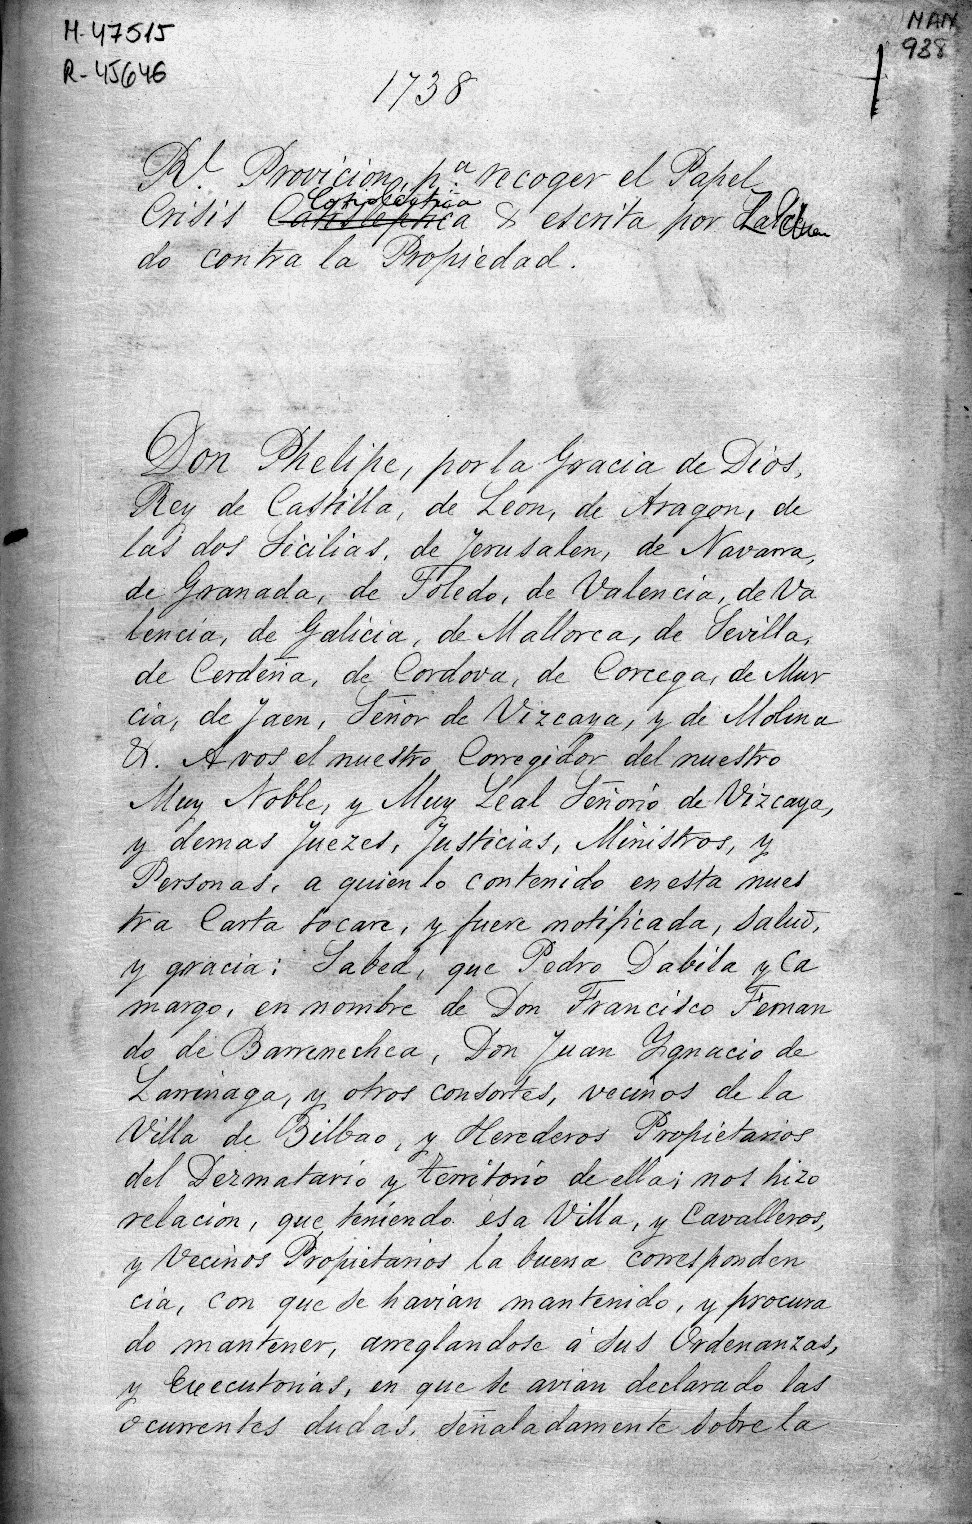 M-47515
R-45646
MAN
938
1738
Rl. Provicion, pa. recoger el Papel
Crisis Cosipoleptica & escrita por
do contra la Propiedad.
Don Phelipe, por la Gracia de Dios,
Rey de Castilla, de Leon, de Aragon, de
las dos Sicilias, de Jerusalen, de Navarra,
de Granada, de Toledo, de Valencia, de Va
lencia, de Galicia, de Mallorca, de Sevilla,
de Cerdeña, de Cordova, de Corcega, de Mur
cia, de Jaen, Señor de Vizcaya, y de Molina
&. A vos el nuestro Corregidor del nuestro
Muy Noble, y Muy Leal Señorio de Vizcaya,
y demas Juezes, Justicias, Ministros, y
Personas, a quien lo contenido en esta nues
tra Carta tocare, y fuere notificada, salud,
y gracia: Sabed, que Pedro Dabila y Ca
margo, en nombre de Don Francisco Fernan
do de Barrenechea, Don Juan Ygnacio de
Larrinaga, y otros consortes, vecinos de la
Villa de Bilbao, y Herederos Propietarios
del Dezmatario y territorio de ella; nos hizo
relacion, que teniendo esa Villa, y Cavalleros,
y Vecinos Propietarios la buena corresponden
cia, con que se havian mantenido, y procura
do mantener, arreglandose á sus Ordenanzas,
y Executorias, en que se avian declarado las
ocurrentes dudas, señaladamente sobre la